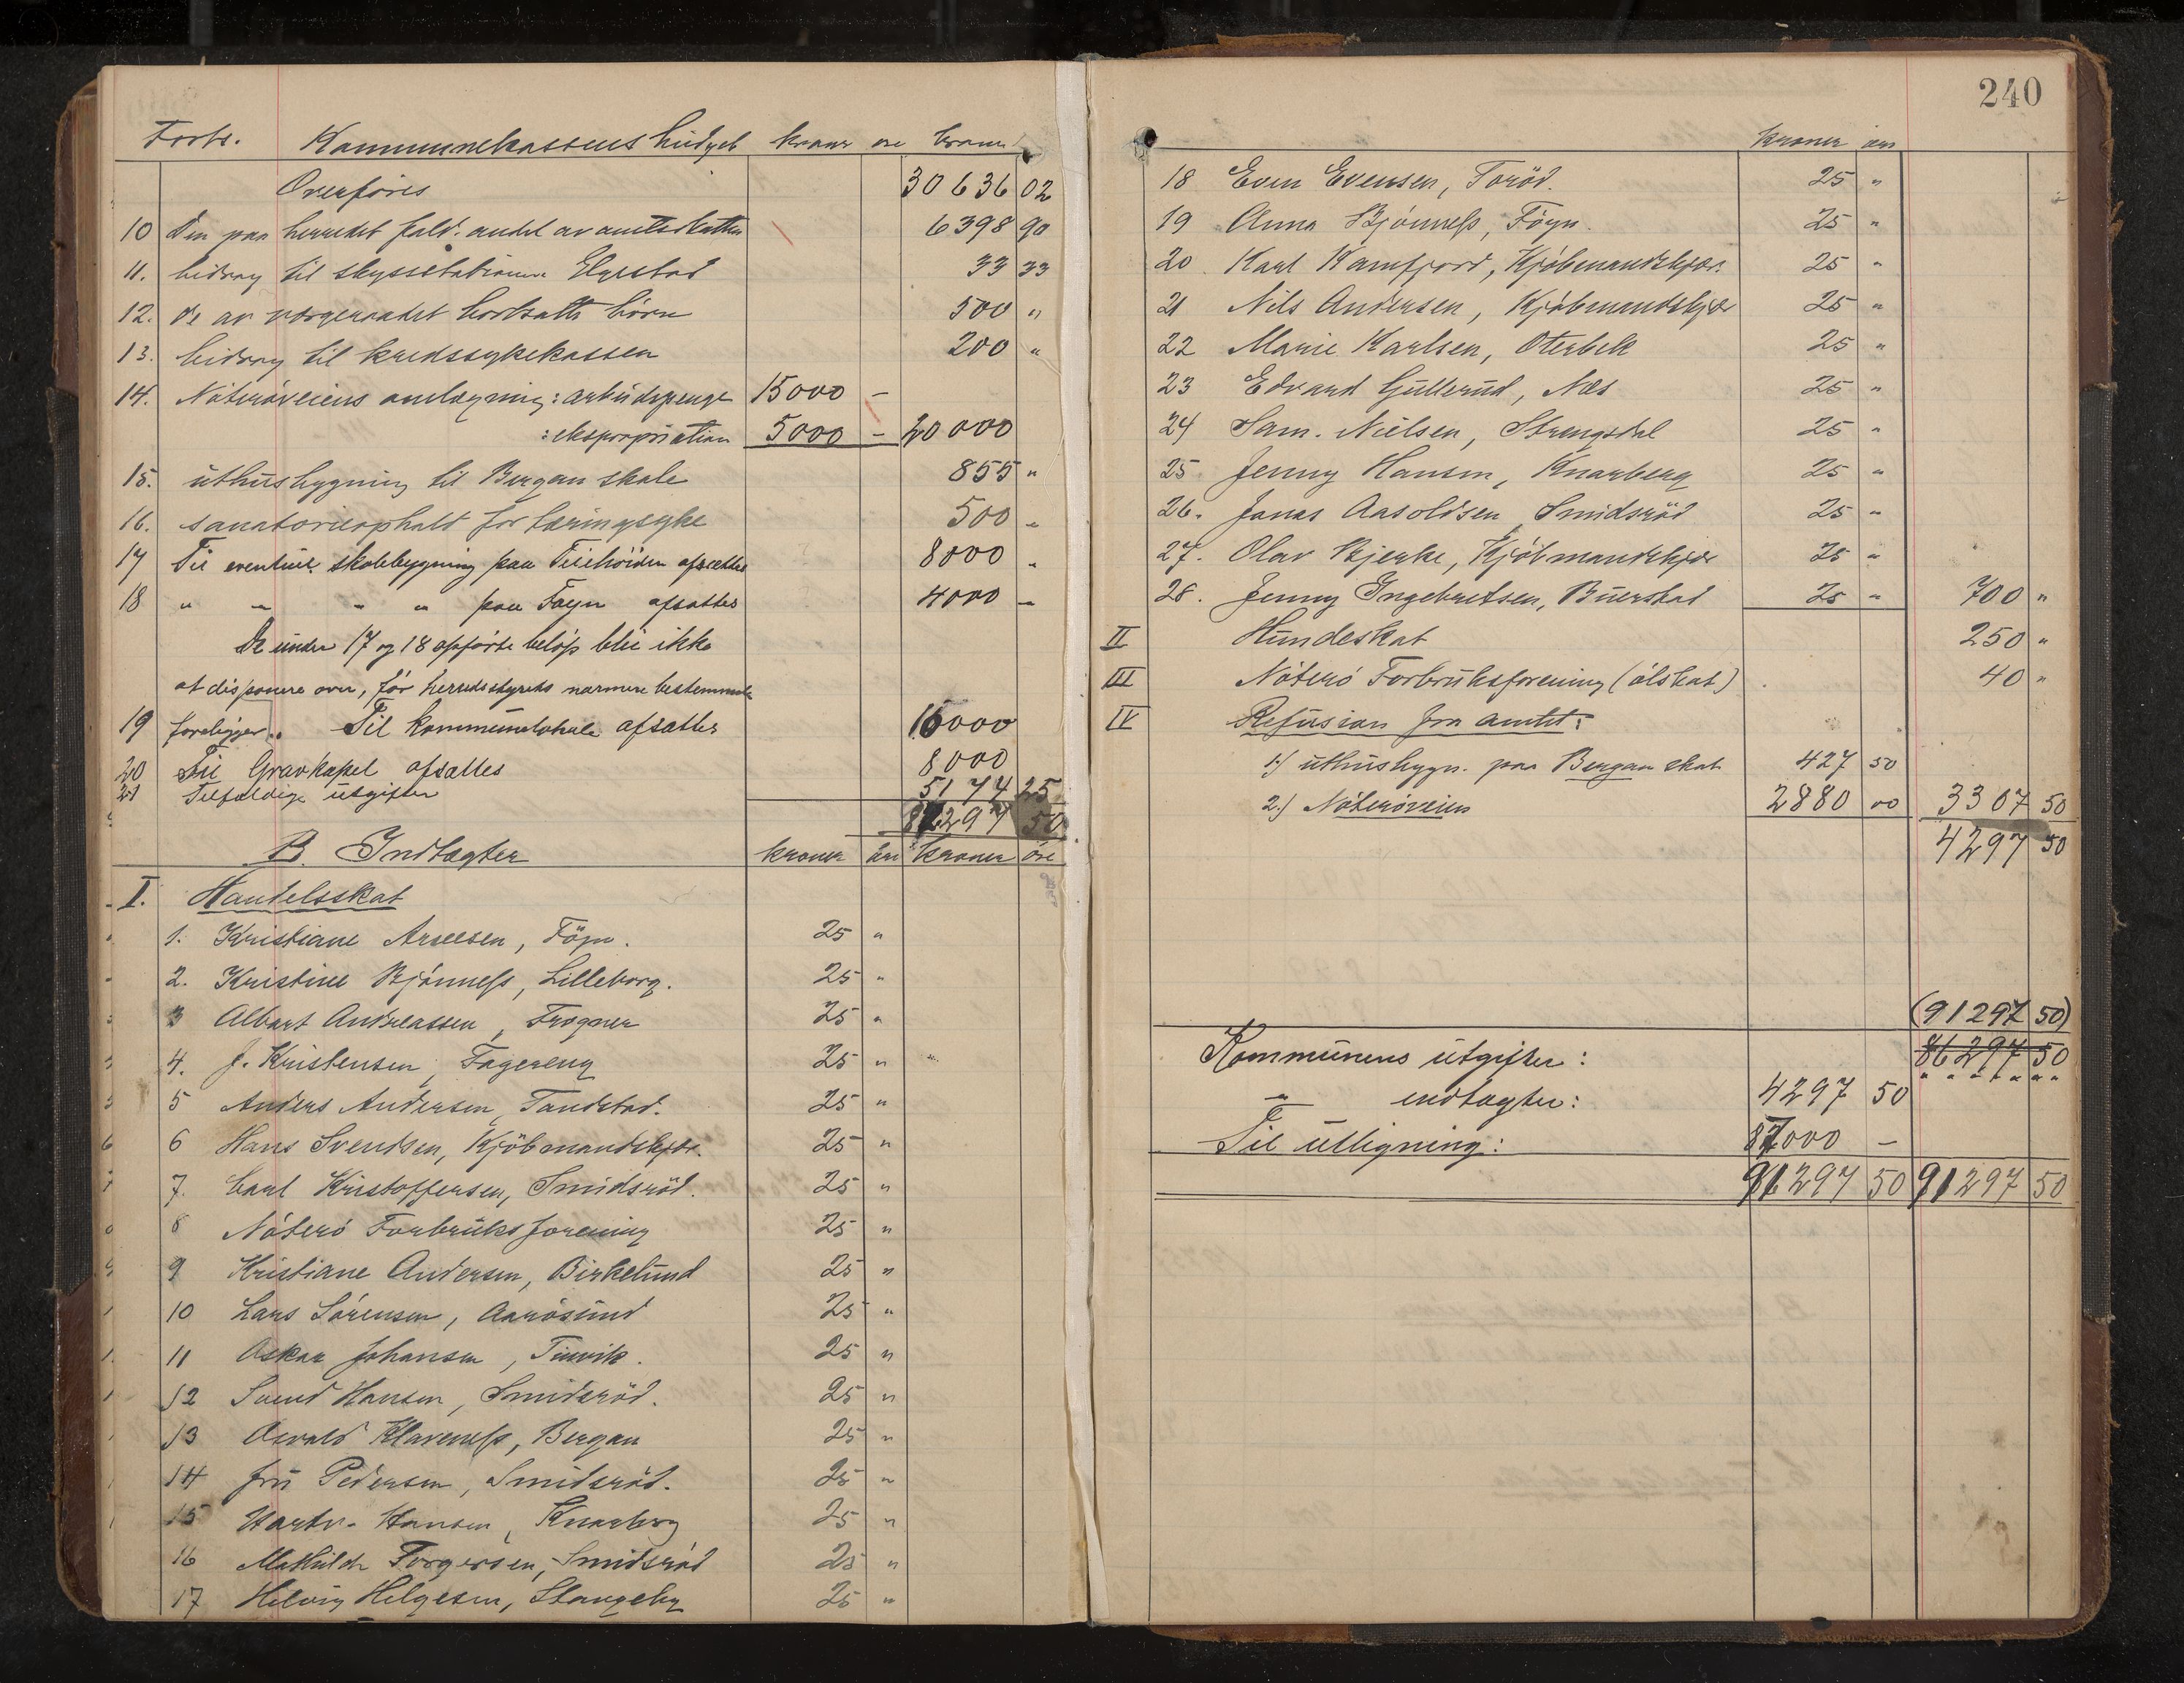 Forts. Kommunekassens budget kroner øre kroner
Overføres 30636 02
10 Den paa herredet fald. andel av amtsskatten 6398 90
11. bidrag til skysstationen Elgestad 33 33
12. de av vergeraadet bortsatte børn 500 "
13. bidrag til kredssykekassen 200 "
14. Nøterøveiens anlægning: arbeidspenge 15000 -
: ekspropriation 5000 - 20000
15. uthusbygning til Bergan skole 855 "
16. sanatorieophold for tæringsyke 500 "
17 Til eventuel skolebygning paa Teiehöiden afsættes 8000 "
18 " " " " paa Föyn afsattes 4000 -
De under 17 og 18 opførte beløp blir ikke
at disponere over, før herredsstyrets nærmere bestemmelse
19 foreligger. Til kommunelokale afsattes 15000
20 Til Gravkapel afsattes 8000
21 Tilfældige utgifter 5174 25
91297 50
B. Indtægter kroner øre kroner øre
I. Handelsskat
1. Kristiane Arnesen, Föyn. 25 "
2. Kristine Bjønness, Lilleborg. 25 "
3 Albert Andreassen, Frogner 25 "
4. J. Kristensen, Fagereng 25 "
5 Anders Andersen, Tandstad. 25 "
6 Hans Svendsen, Kjöbmandskjær. 25 "
7. Carl Kristoffersen, Smidsröd. 25 "
8 Nøterö Forbruksforening 25 "
9 Kristiane Andersen, Birkelund 25 "
10 Lars Sørensen, Aarøsund 25 "
11 Oskar Johansen, Tinvik. 25 "
12 Svend Hansen, Smidsröd. 25 "
13 Osvald Klaveness, Bergan 25 "
14 Fru Pedersen, Smidsröd. 25 "
15 Hartv. Hansen, Knarberg 25 "
16 Mathilde Torgersen, Smidsröd 25 "
17 Helvig Helgesen, Stangeby 25 "
240
kroner øre
18 Even Evensen, Toröd. 25 "
19 Anna Bjønness, Föyn. 25 "
20 Karl Kamfjord, Kjöbmandskjær. 25 "
21 Nils Andersen, Kjöbmandskjær 25 "
22 Marie Karlsen, Oterbek 25 "
23 Edvard Gullerud, Næs 25 "
24 Sam. Nielsen, Strengsdal 25 "
25 Jenny Hansen, Knarberg 25 "
26. Jonas Aasoldsen, Smidsröd 25 "
27. Olav Bjerke, Kjöbmandskjær 25 "
28. Jenny Ingebretsen, Buerstad 25 " 700 "
II Hundeskat 250 "
III Nøterö Forbruksforening (ølskat) 40 "
IV Refusion fra amtet:
1.) uthusbygn. paa Bergan skole 427 50
2.) Nøterøveien 2880 00 3307 50
4297 50
(91297 50)
Kommunens utgifter: 86297 50
" indtægter: 4297 50
Til utligning: 87000 -
91297 50 91297 50